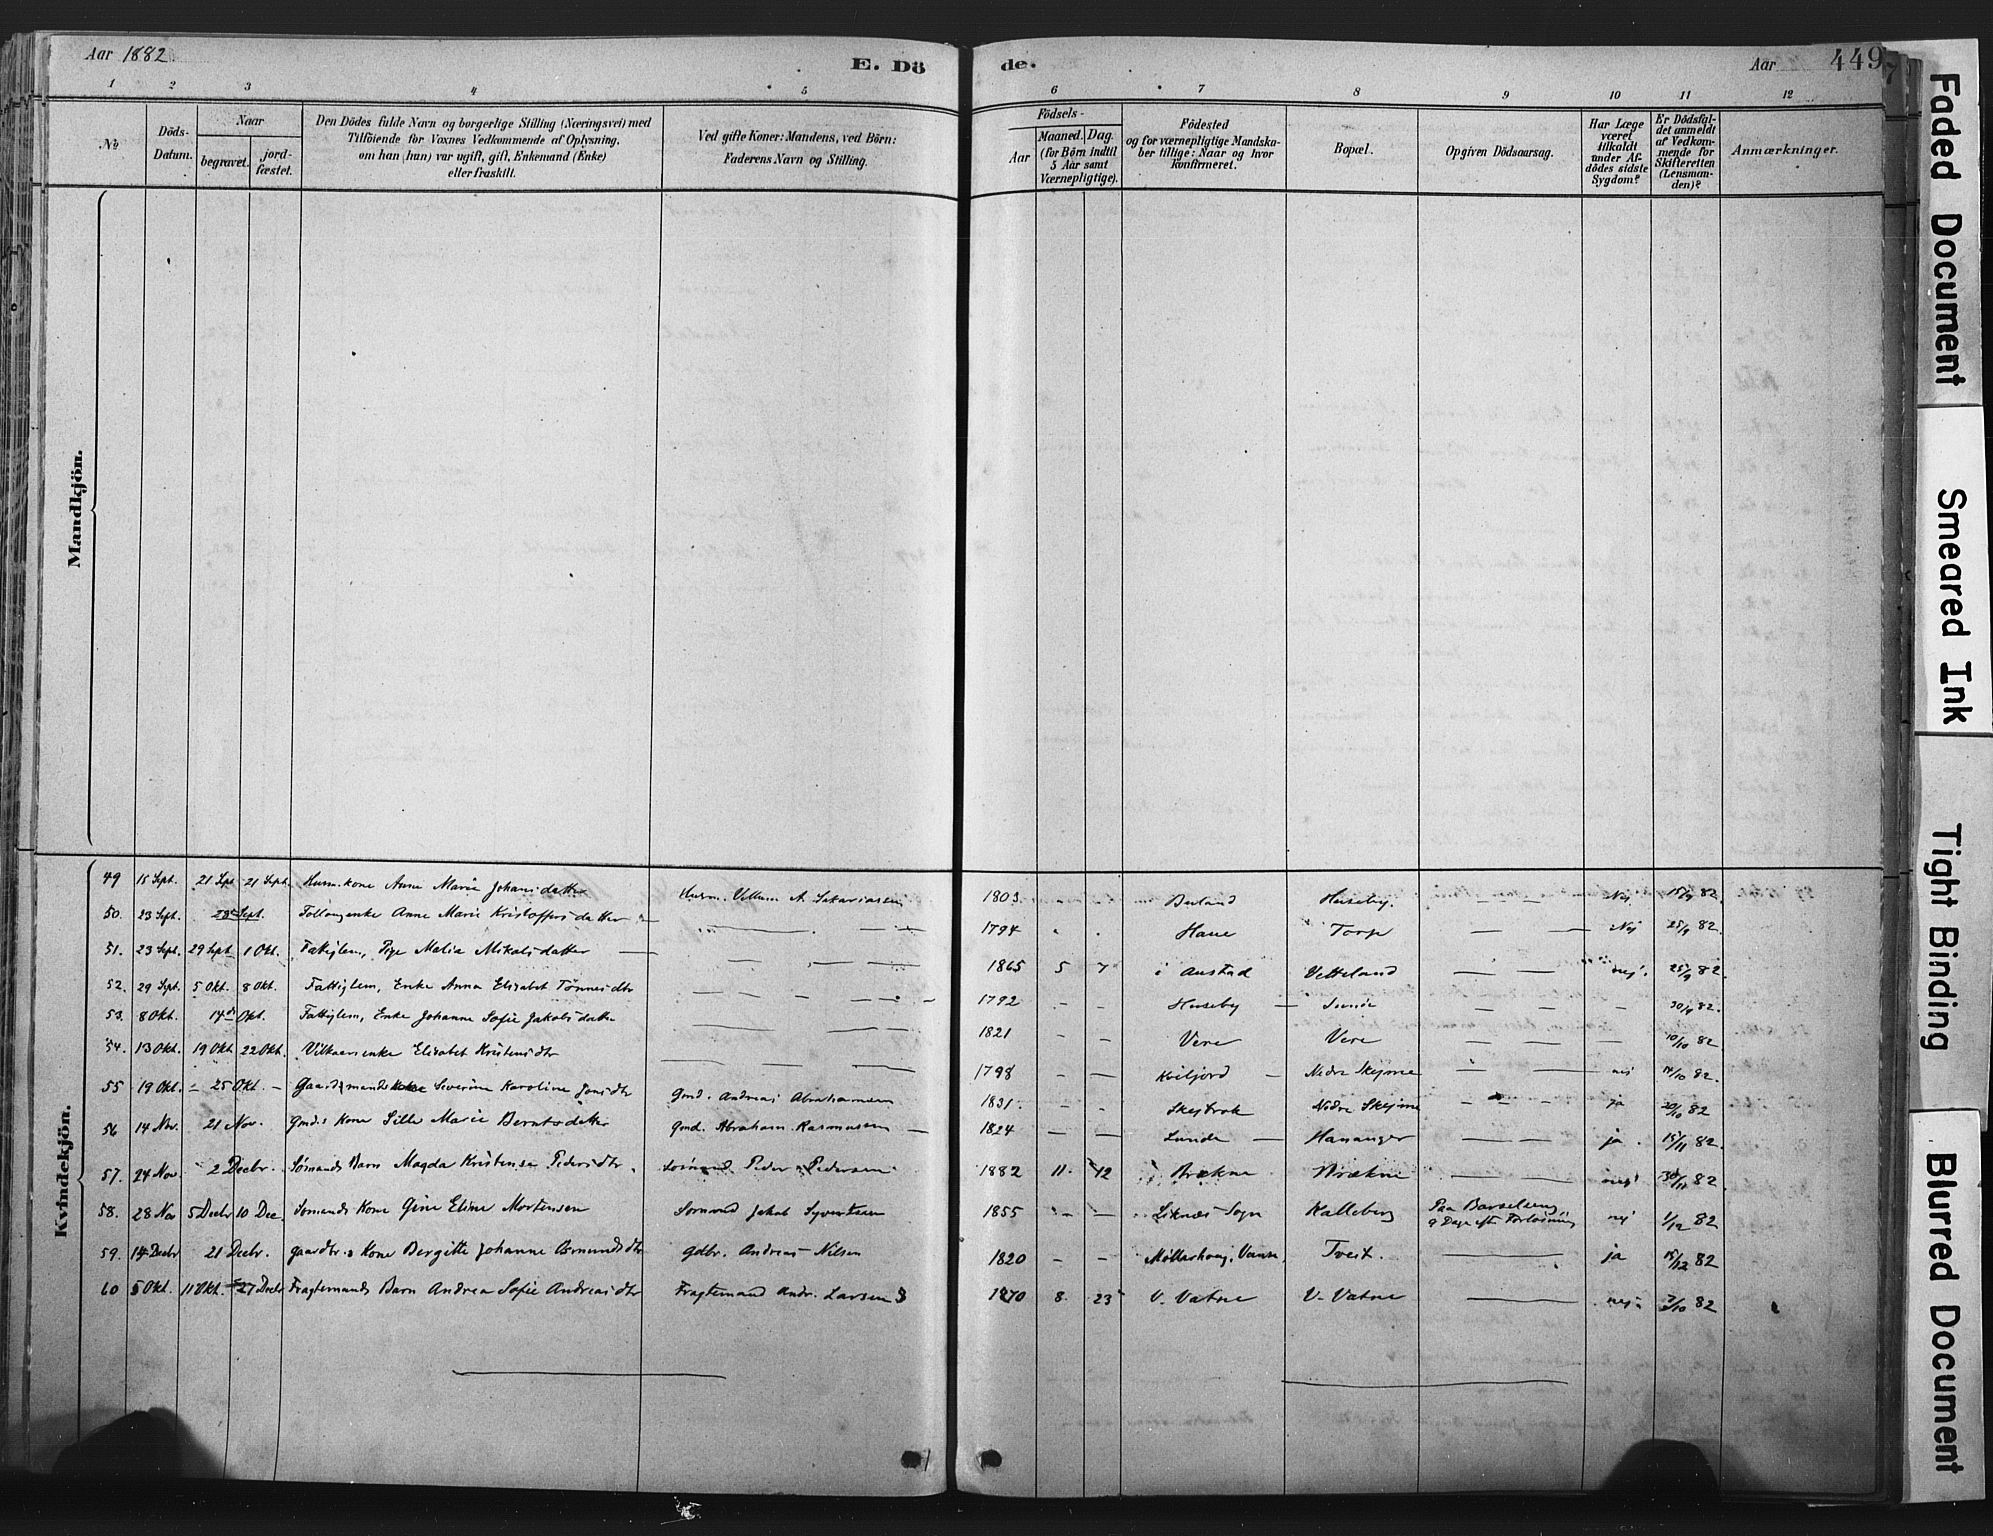 Aar 1882
E. Dö de.
Aar 449
1 2 3 4 5 6 7 8 9 10 11 12
No
Döds-Datum.
Naar
begravet.
jord-fæstet.
Den Dödes fulde Navn og borgerlige Stilling (Næringsvei) med
Tilföiende for Voxnes Vedkommende af Oplysning,
om han (hun) var ugift, gift, Enkemand (Enke)
eller fraskilt.
Ved gifte Koner: Mandens, ved Börn:
Faderens Navn og Stilling.
Födsels-
Aar
Maaned. Dag.
(for Börn indtil
5 Aar samt
Værnepligtige).
Födested
og for værnepligtige Mandska-
ber tillige: Naar og hvor
konfirmeret.
Bopæl.
Opgiven Dödsaarsag.
Har Læge
været
tilkaldt
under Af-
dödes sidste
Sygdom?
Er Dödsfal-
det anmeldt
af Vedkom-
mende for
Skifteretten
(Lensman-
den)?
Anmærkninger.
Mandkjön.
Kvindekjön.
49 15 Sept. 21 Sept 21 Sept. Husm. kone Anne Marie Johansdatter Husm. Villum A. Sakariassen 1803 - Huseby. - - - Nej 15/9 82.
50. 23 Sept. 28 Sept. Enke Anne Marie Kristoffersdatter 1794 Haue Torp Nej 25/9 82.
51. 23 Sept. 29 Sept 1 Okt. Fattiglem, Pige Malia Mikalsdatter 1865 5 7 i Austad Vetteland nej. 25/9 82.
52. 29 Sept. 5 Okt. 8 Okt. Fattiglem, Enke Anna Elisabet Tönnesdtr 1792 - - Huseby - 30/9 82.
53. 8 Okt. 14 Okt. Fattiglem, Enke Johanne Sofie Jakobsdatter 1821 - - Vere Vere 10/10 82
54. 13 Okt. 19 Okt 22 Okt. Elisabet Kristensdtr 1798 - - Kviljord - Nedre Skejme nej 14/10 82.
55 19 Okt. - 25 Okt. - Gaardmands kone Severine Karoline Jonsdtr Gmd. Andreas Abrahamsen 1831. - - Skejbrok Nedre Skejme ja 20/10 82
56 14 Nov. 21 Nov. Gmd.s Kone Sille Marie Berntsdatter Gmd. Abraham Rasmussen 1824 - - Lunde - Hananger ja. 15/11 82.
57. 24 Nov. 2 Decbr. Sömands Barn Magda Kristense Pedersdtr. Sömand Peder Pedersen 1882 11. 12 Brækne Brækne nej 30/11 82.
58. 28 Nov 5 Decbr 10 Dec. Sömands Kone Gine Eline Mortensen Sömand Jakob Syvertsen 1855 - - Liknes Sogn Kalleberg Paa Barselseng, 9 Dage efter Forlösning nej 1/12 82
59. 14 Decbr 21 Decbr. gaardbr.s Kone Bergitte Johanne Asmundsdtr Gdbr. Andreas Nilsen 1820 - - Vanse, Tveit. ja 15/12 82
60 5 Okt. 11 Okt. 27 Decbr Fragtemands Barn Andrea Sofie Andreasdtr Fragtemand Andr. Larsen 1870 8. 23 V. Vatne V. Vatne nej 7/10 82
Faded Document
Smeared Ink
Tight Binding
Blurred Document